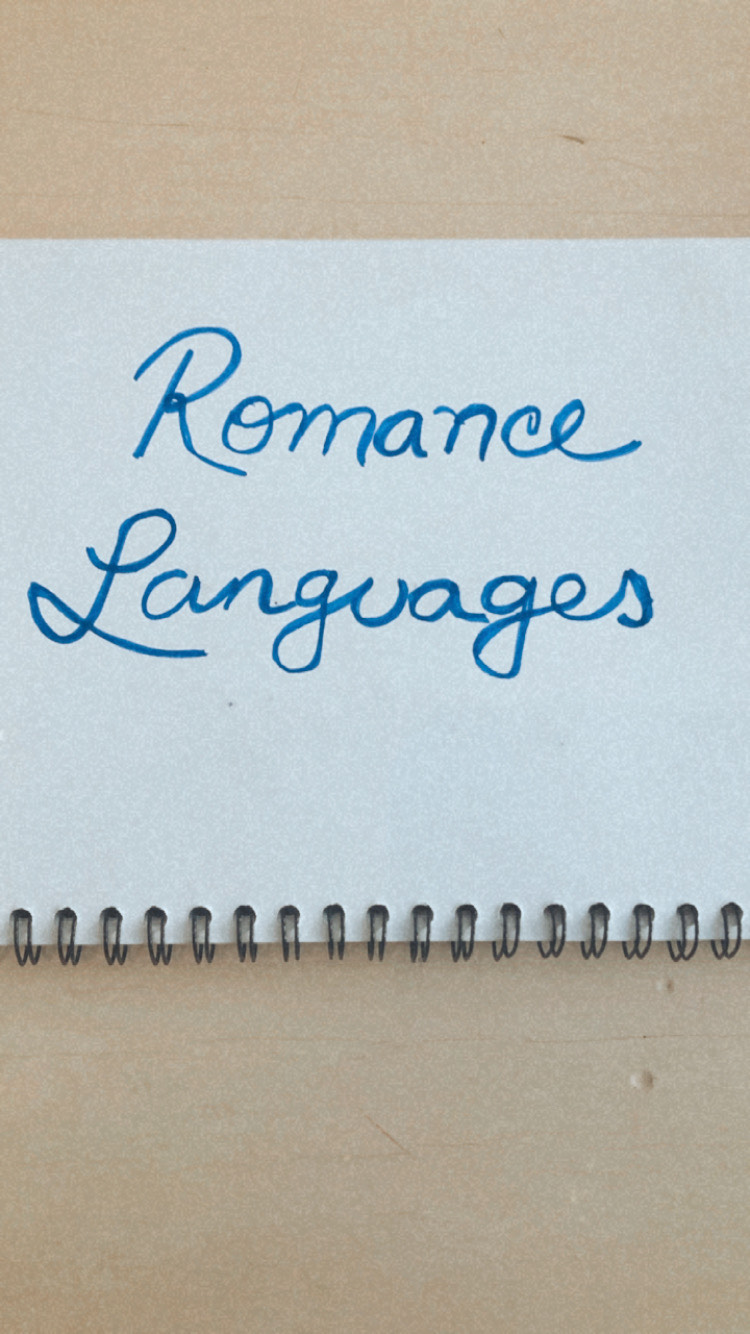 Romance
Languages